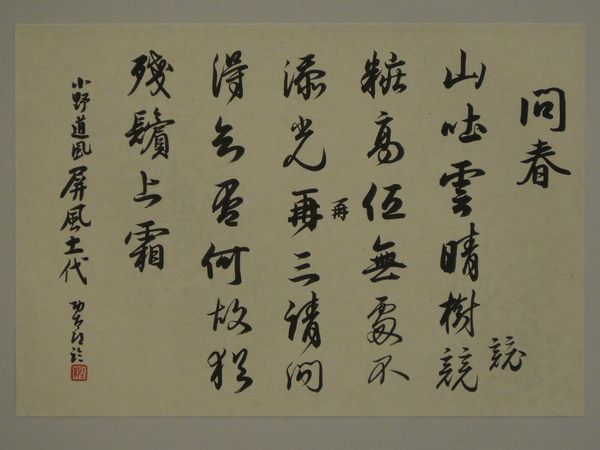 問春
競
山吐雲晴樹競
粧高低無處不
再
添光再三請問
得否何故猶
殘鬢上霜
小野道風屏風土代 臨